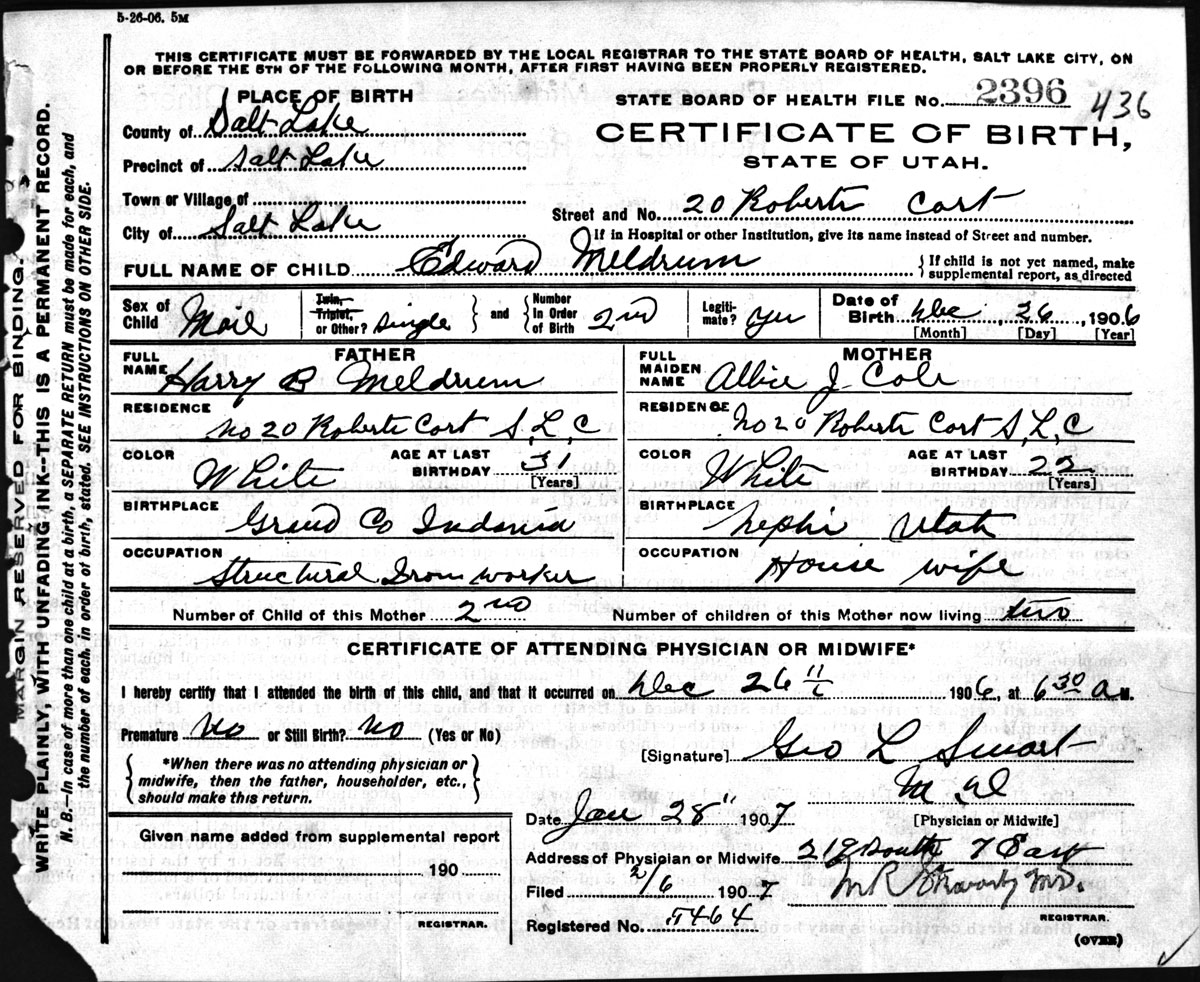 5-26-06. 5M
THIS CERTIFICATE MUST BE FORWARDED BY THE LOCAL REGISTRAR TO THE STATE BOARD OF HEALTH, SALT LAKE CITY, ON
OR BEFORE THE 5TH OF THE FOLLOWING MONTH, AFTER FIRST HAVING BEEN PROPERLY REGISTERED.
PLACE OF BIRTH
STATE BOARD OF HEALTH FILE No. 2396 436
County of Salt Lake
CERTIFICATE OF BIRTH,
Precinct of Salt Lake
STATE OF UTAH.
Town or Village of
Street and No. 20 Roberts Cort
City of Salt Lake
If in Hospital or other Institution, give its name instead of Street and number.
FULL NAME OF CHILD Edward Meldrum
If child is not yet named, make
supplemental report, as directed
Sex of Child Male
Twin, Triplet, or Other? Single
and Number In Order of Birth 2nd
Legitimate? Yes
Date of Birth Dec 26, 1906
[Month] [Day] [Year]
FATHER
FULL NAME Harry B Meldrum
MOTHER
FULL MAIDEN NAME Allice J Cole
RESIDENCE No 20 Roberts Cort S, L, C
RESIDENCE No 20 Roberts Cort S, L, C
COLOR White AGE AT LAST BIRTHDAY 31 [Years]
COLOR White AGE AT LAST BIRTHDAY 22 [Years]
BIRTHPLACE Co
BIRTHPLACE Nephi Utah
OCCUPATION Structural Iron worker
OCCUPATION House wife
Number of Child of this Mother 2nd
Number of children of this Mother now living two
CERTIFICATE OF ATTENDING PHYSICIAN OR MIDWIFE*
I hereby certify that I attended the birth of this child, and that it occurred on Dec 26 1906, at 6 30 a M.
Premature No or Still Birth? No (Yes or No)
[Signature] Geo L Smart
M D
[Physician or Midwife]
*When there was no attending physician or
midwife, then the father, householder, etc.,
should make this return.
Date Jan 28" 1907
Given name added from supplemental report
190
REGISTRAR.
Address of Physician or Midwife 219 South 7 East
Filed 2/6 1907
M.D.
REGISTRAR.
Registered No. 5464
(OVER)
MARGIN RESERVED FOR BINDING.
WRITE PLAINLY, WITH UNFADING INK--THIS IS A PERMANENT RECORD.
N. B.—In case of more than one child at a birth, a SEPARATE RETURN must be made for each, and
the number of each, in order of birth, stated. SEE INSTRUCTIONS ON OTHER SIDE.